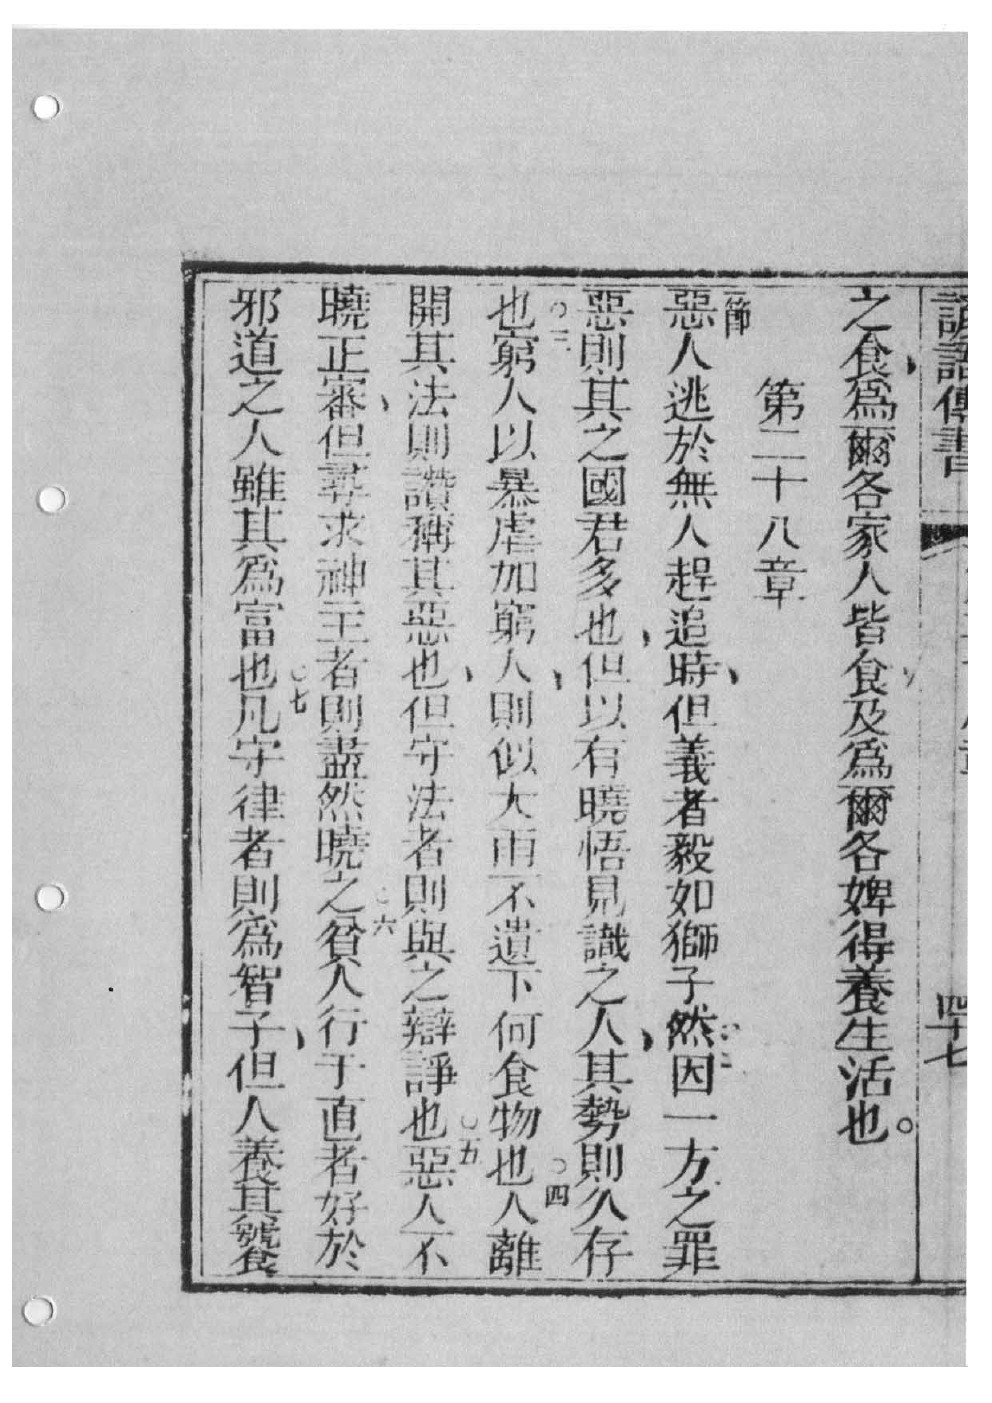 諺語傳書
四十七
之食爲爾各家人皆食及爲爾各婢得養生活也。
第二十八章
一節惡人逃於無人趕追時但義者毅如獅子然○二因一方之罪
惡則其之國君多也但以有曉悟見識之人其勢則久存
也○三窮人以暴虐加窮人則似大雨不遺下何食物也○四人離
開其法則讚稱其惡也但守法者則與之辯諍也○五惡人不
曉正審但尋求神主者則盡然曉之○六貧人行于直者好於
邪道之人雖其爲富也○七凡守律者則爲智子但人養其饕